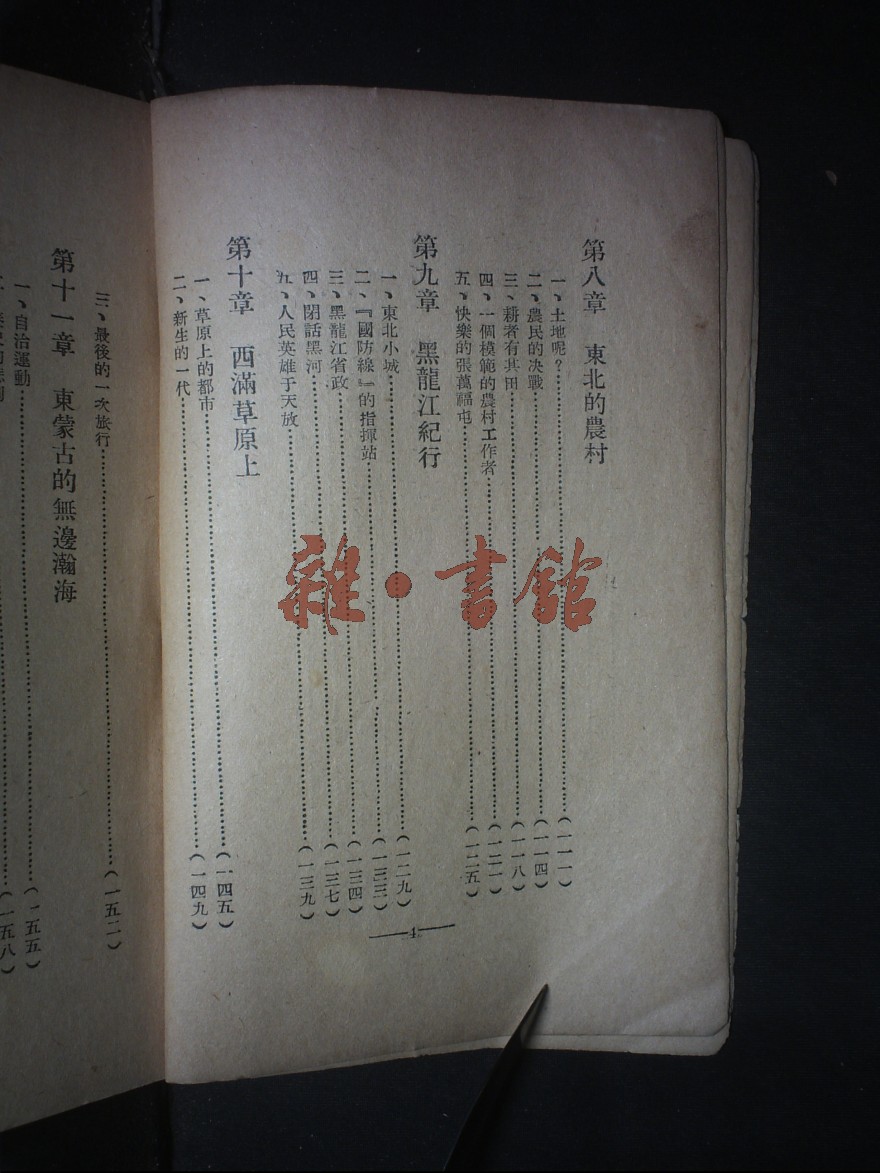 第八章 東北的農村
一、土地呢?……(一一一)
二、農民的決戰……(一一四)
三、耕者有其田……(一一八)
四、一個模範的農村工作者……(一二一)
五、快樂的張萬福屯……(一二五)
第九章 黑龍江紀行
一、東北小城……(一二九)
二、『國防線』的指揮站……(一三三)
三、黑龍江省政……(一三四)
四、閑話黑河……(一三七)
五、人民英雄于天放……(一三九)
第十章 西滿草原上
一、草原上的都市……(一四五)
二、新生的一代……(一四九)
—4—
三、最後的一次旅行……(一五二)
第十一章 東蒙古的無邊瀚海
一、自治運動……(一五五)
(一五八)
雜·書館